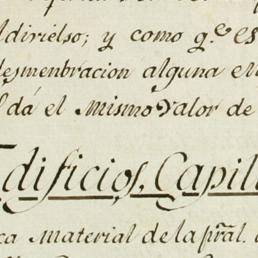 ldiviélso; y como q.e es
desmenbracion alguna e
l dá el mismo valor de
Edificios, Capil
ca material de la pral.